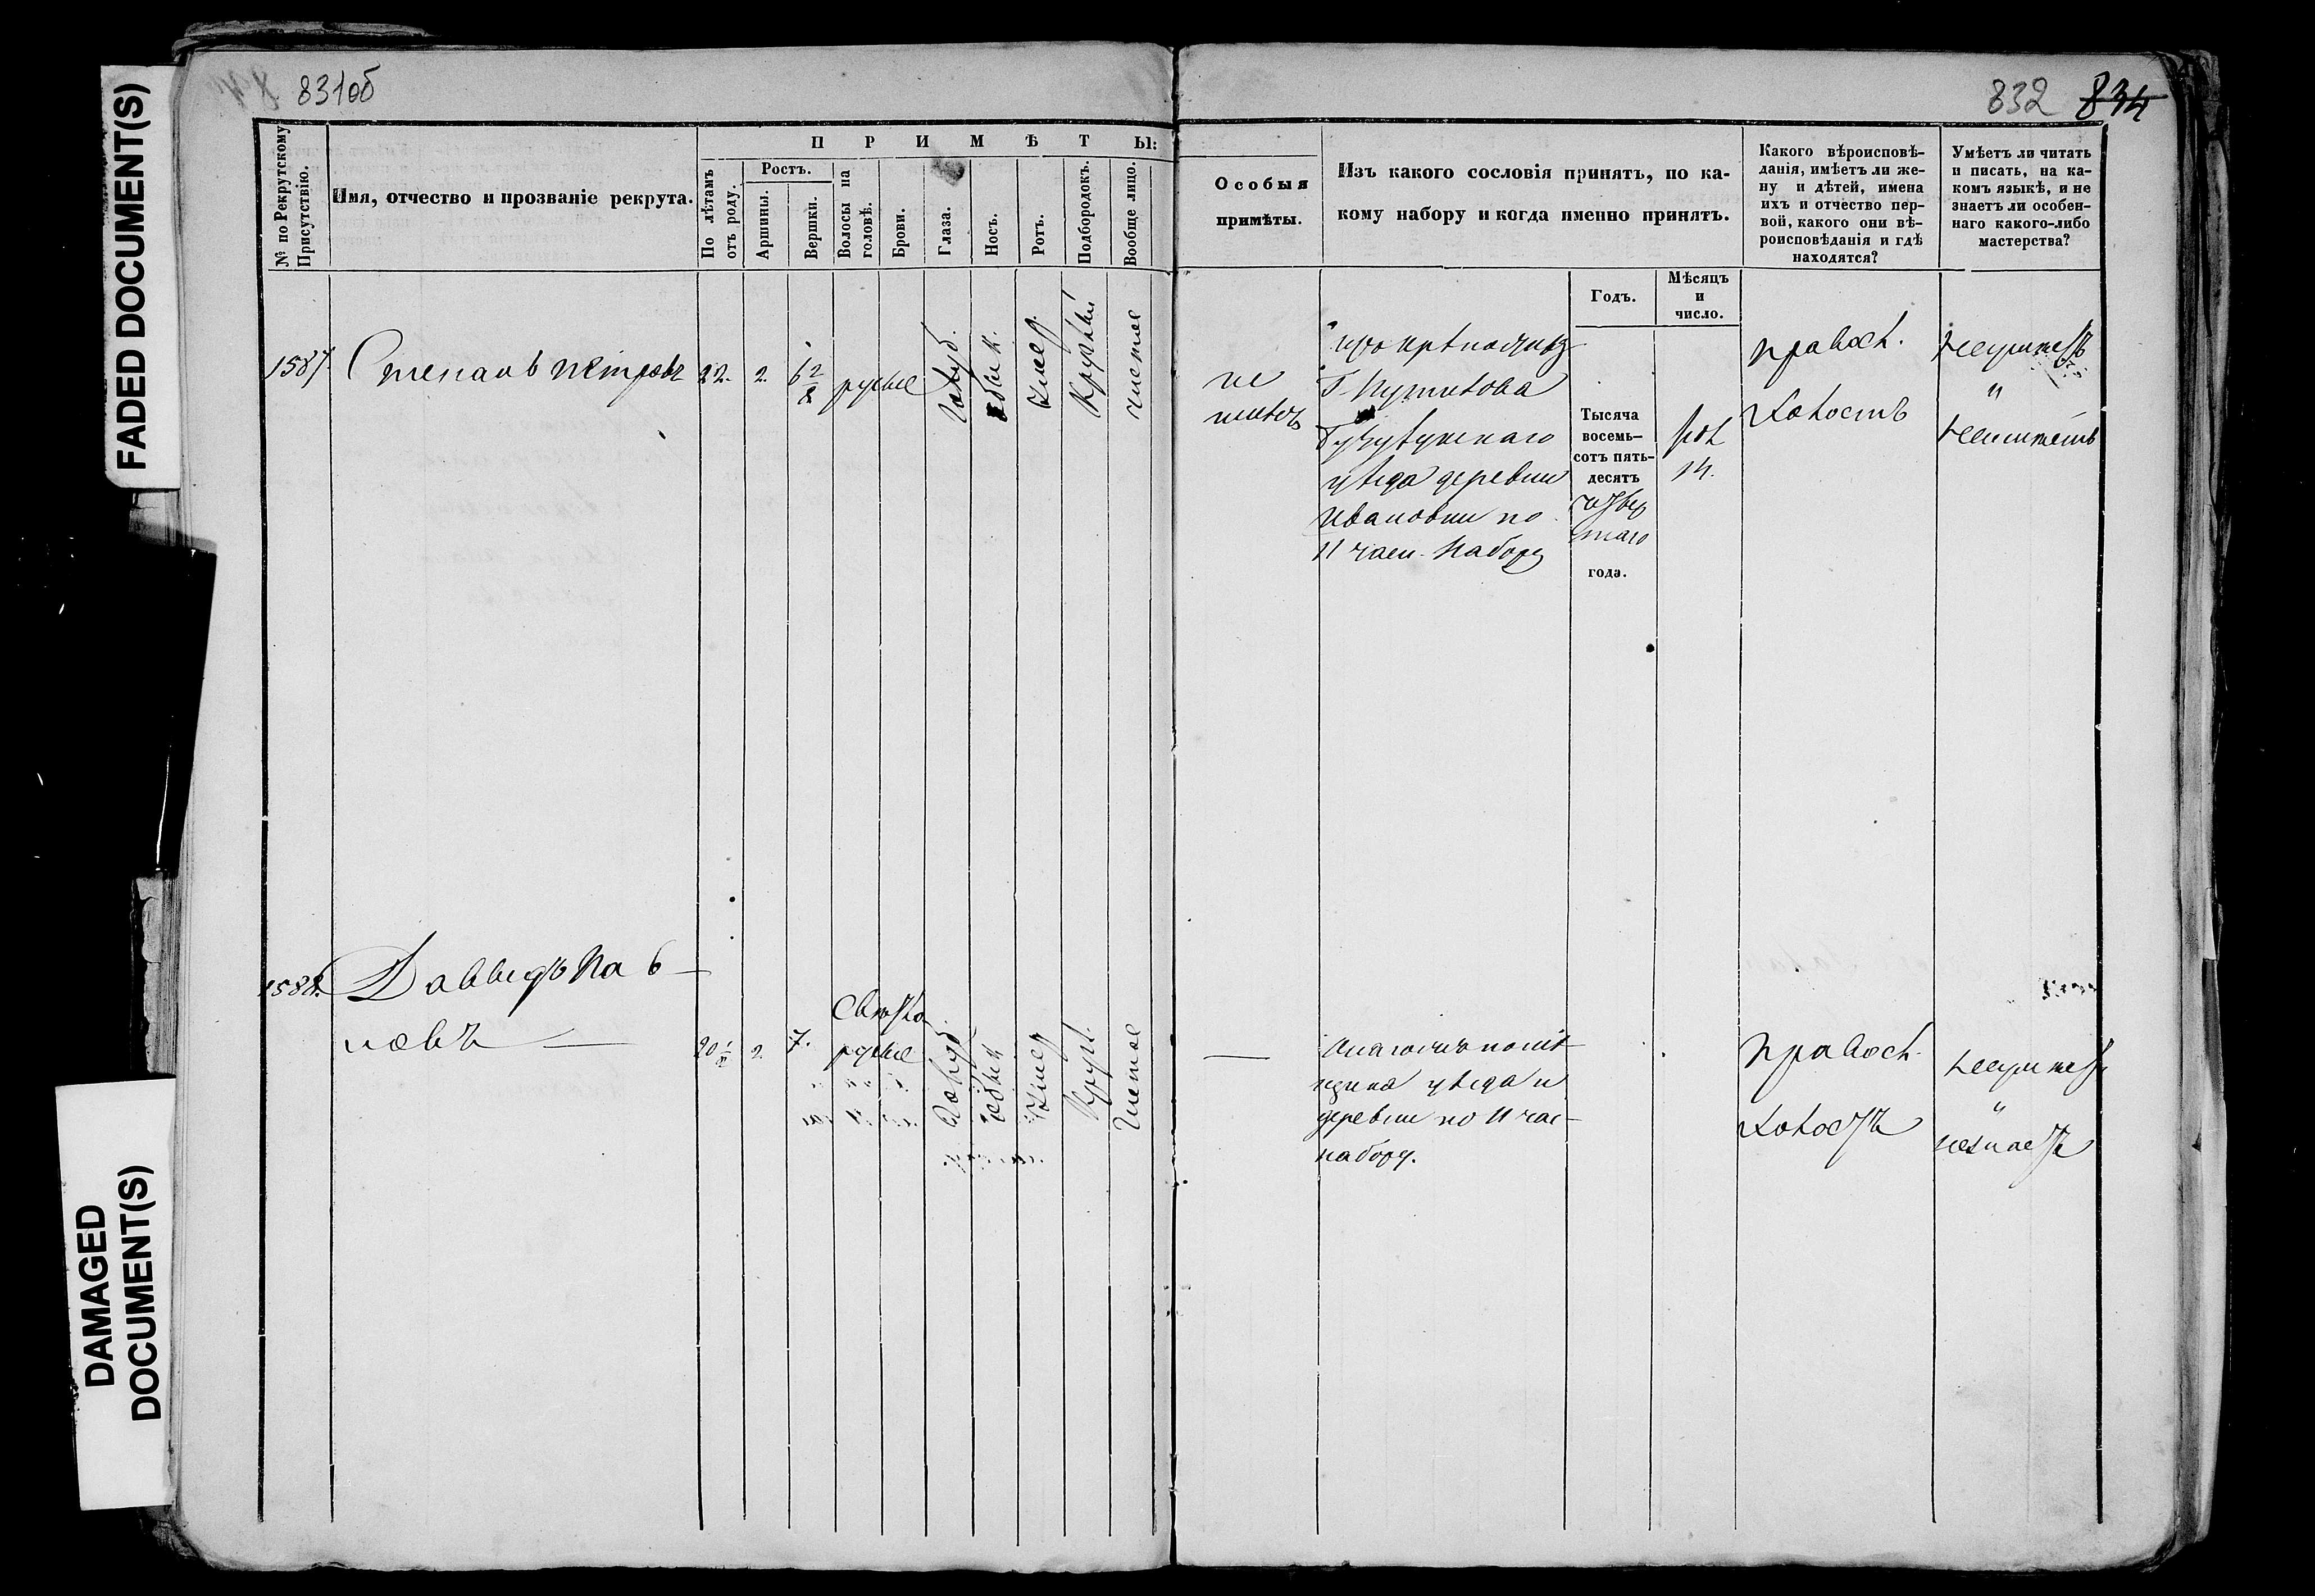 FADED DOCUMENT(S)
DAMAGED
DOCUMENT(S)
831об
832 834
№ по Рекрутскому
Присутствію.
Имя, отчество и прозваніе рекрута.
П Р И М Ѣ Т Ы:
По лѣтамъ
отъ роду.
Ростъ.
Аршины.
Вершки.
Волосы на
головѣ.
Брови.
Глаза.
Носъ.
Ротъ.
Подбородокъ.
Вообще лицо.
Особыя
примѣты.
Изъ какого сословія принятъ, по ка-
кому набору и когда именно принятъ.
Годъ.
Мѣсяцъ
и
число.
Какого вѣроисповѣ-
данія, имѣетъ ли же-
ну и дѣтей, имена
ихъ и отчество пер-
вой, какого они вѣ-
роисповѣданія и гдѣ
находятся?
Умѣетъ ли читать
и писать, на ка-
комъ языкѣ, и не
знаетъ ли особен-
наго какого-либо
мастерства?
1587. Степанъ Петровъ 22. 2. 6 2/8 русые голуб. обык. умер. круглый чистое
не
имѣетъ
изъ крѣпостныхъ
Г. Путилова
Бузулукскаго
уѣзда деревни
Ивановки по
11 част. набору
Тысяча
восемь-
сотъ пять-
десятъ
четвер
таго
года.
14.
правосл.
холостъ
неумѣетъ
"
неимѣетъ
1588. Давыдъ Пав-
ловъ
20 2. 7. Свѣтло
русые голуб. обык умер кругл. чистое
—
Аналогичъ помѣ-
щика уѣзда и
деревни по 11 час-
набору.
правосл.
холостъ
неумѣетъ
"
незнаетъ